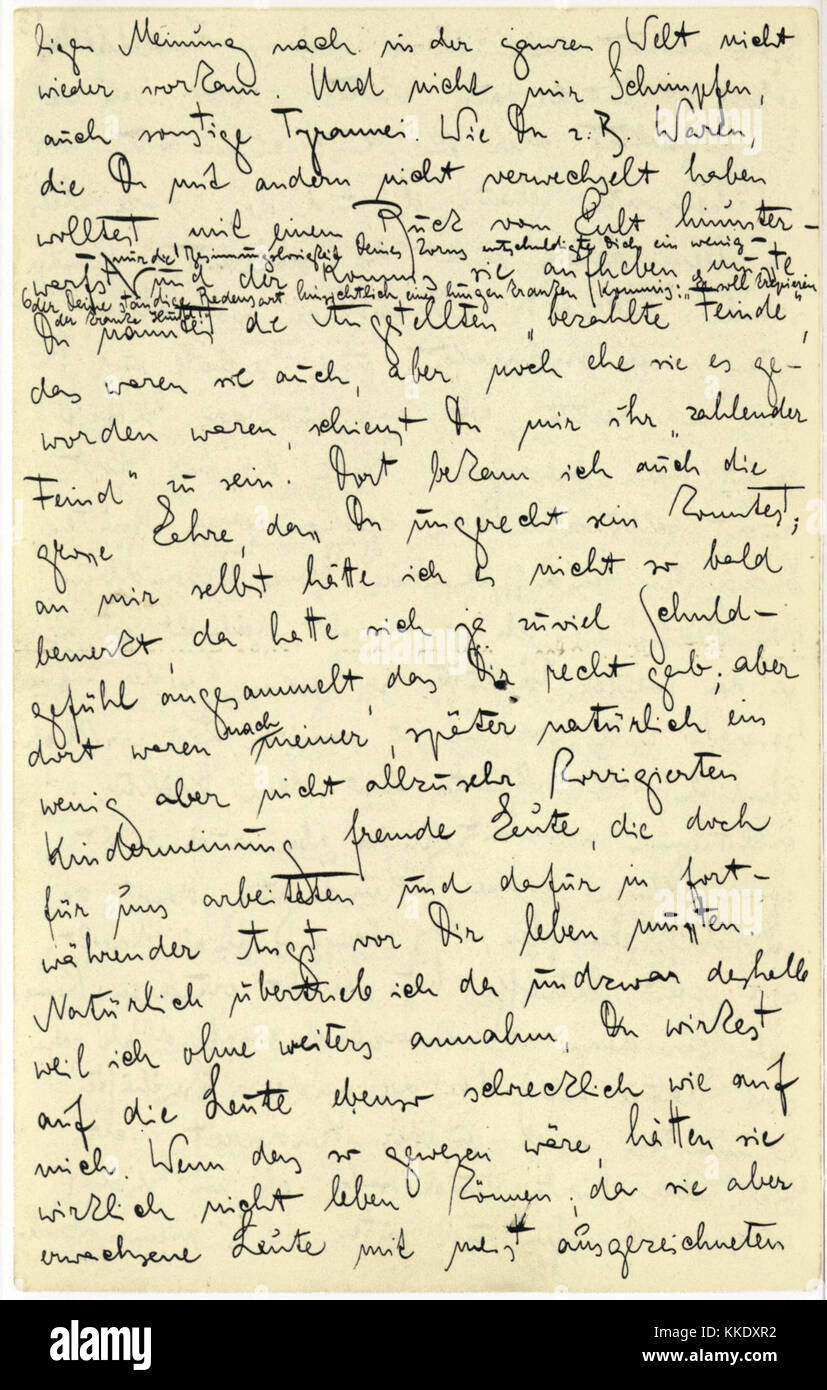 tigen Meinung nach in der ganzen Welt nicht
wieder vorkam. Und nicht nur Schimpfen,
auch sonstige Tyrannei. Wie Du z. B. Waren,
die Du mit andern nicht verwechselt haben
wolltest mit einem Ruck vom Pult hinunter-
nur die Besinnungslosigkeit Deines Zorns entschuldigte Dich ein wenig-
warfst und der Kommis sie aufheben musste
Oder Deine ständige Redensart hinsichtlich eines lungenkranken Kommis: "Er soll krepieren
der kranke Hund!"
Du nanntest die Angestellten „bezahlte Feinde",
das waren sie auch, aber noch ehe sie es ge-
worden waren, schienst Du mir ihr „zahlender
Feind" zu sein. Dort bekam ich auch die
grosse Lehre, dass Du ungerecht sein konntest;
an mir selbst hätte ich es nicht so bald
bemerkt, da hatte sich ja zuviel Schuld-
gefühl angesammelt, das Dir recht gab; aber
dort waren nach meiner, später natürlich ein
wenig aber nicht allzusehr korrigierten
Kindermeinung fremde Leute, die doch
für uns arbeiteten und dafür in fort-
währender Angst vor Dir leben mussten.
Natürlich übertrieb ich da undzwar deshalb
weil ich ohne weiters annahm, Du wirkest
auf die Leute ebenso schrecklich wie auf
mich. Wenn das so gewesen wäre, hätten sie
wirklich nicht leben können; da sie aber
erwachsene Leute mit meist ausgezeichneten
alamy
Image ID: KKDXR2
www.alamy.com